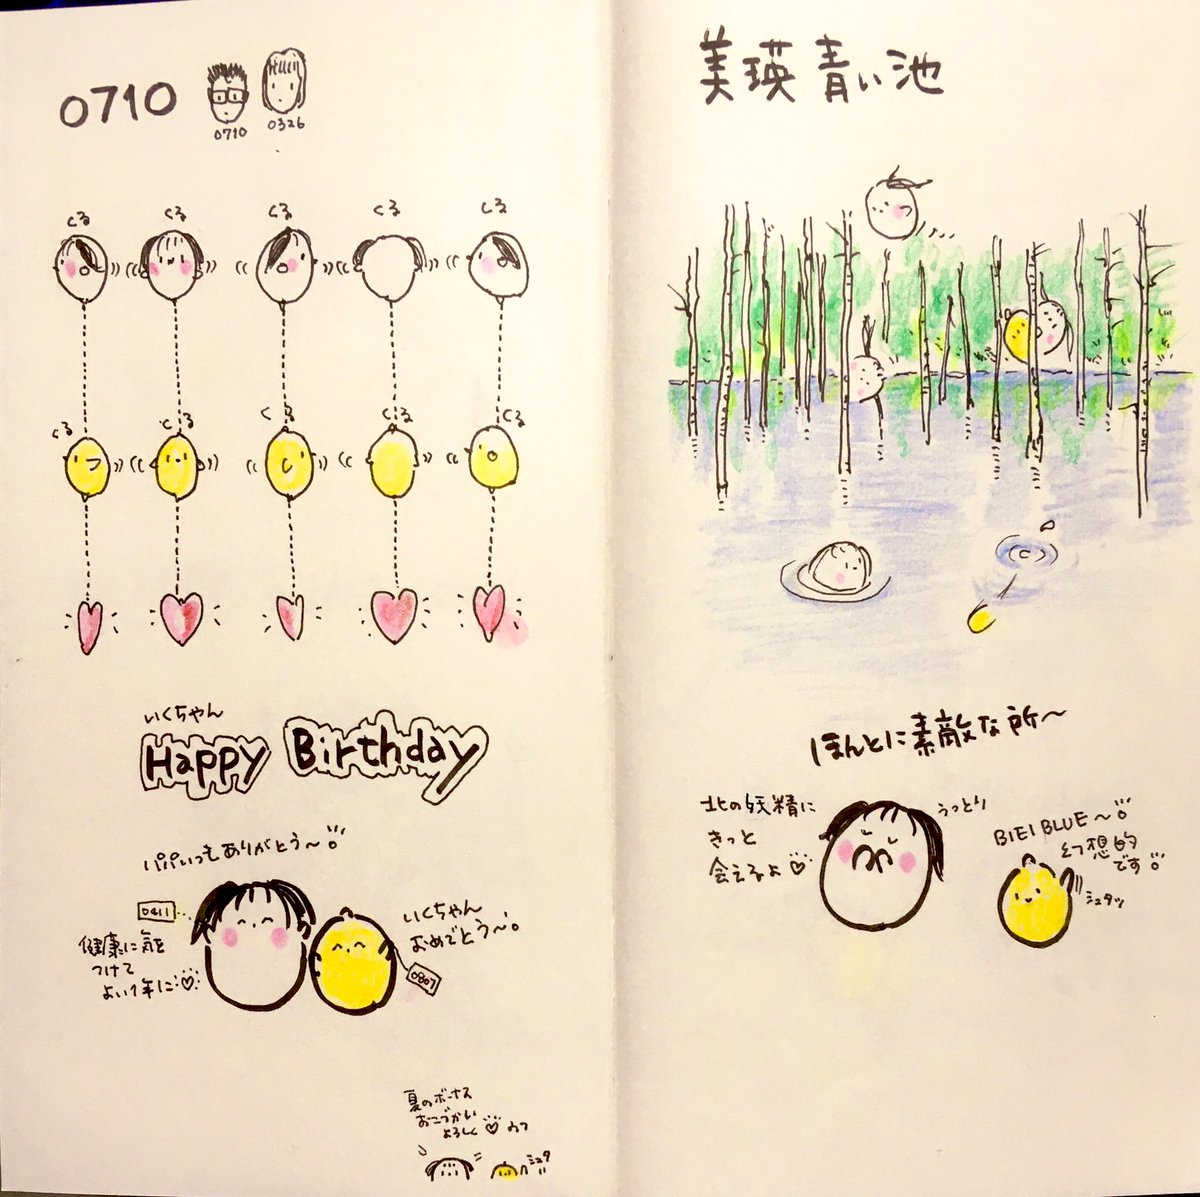 0710
0710
0326
くる
くる
くる
くる
くる
くる
くる
くる
くる
くる
いくちゃん
Happy Birthday
パパいつもありがとう〜
0411
健康に気を
つけて
よい1年に♡
いくちゃん
おめでとう〜
0807
夏のボーナス
おこづかい
よろしく♡
美瑛 青い池
ほんとに素敵な所〜
北の妖精に
きっと
会えるよ♡
うっとり
BIEI BLUE〜
幻想的
です
シュタッ